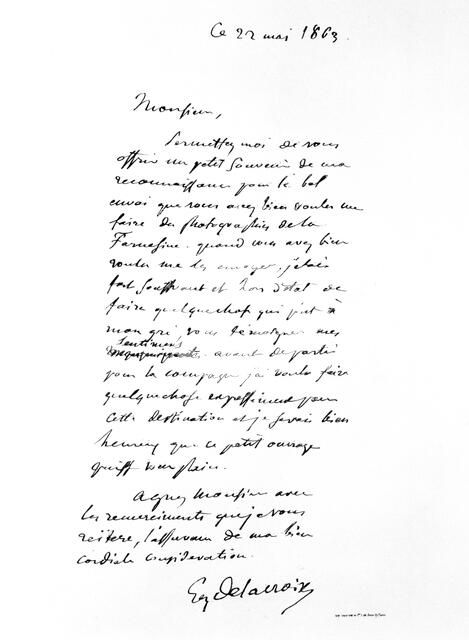 Ce 22 mai 1863.
Monsieur,
Permettez moi de vous
offrir un petit souvenir de ma
reconnaissance pour le bel
envoi que vous avez bien voulu me
faire des photographies de la
Farnesine. quand vous avez bien
voulu me les envoyer, j'etais
fort souffrant et hors d'etat de
faire quelque chose qui put à
mon gré vous témoigner mes
sentimens
avant de partir
pour la campagne j'ai voulu faire
quelque chose expressément pour
cette destination et je serais bien
heureux que ce petit ouvrage
put vous plaire.
Agreez Monsieur avec
les remerciements que je vous
reitere, l'assurance de ma bien
cordiale consideration.
Eug Delacroix